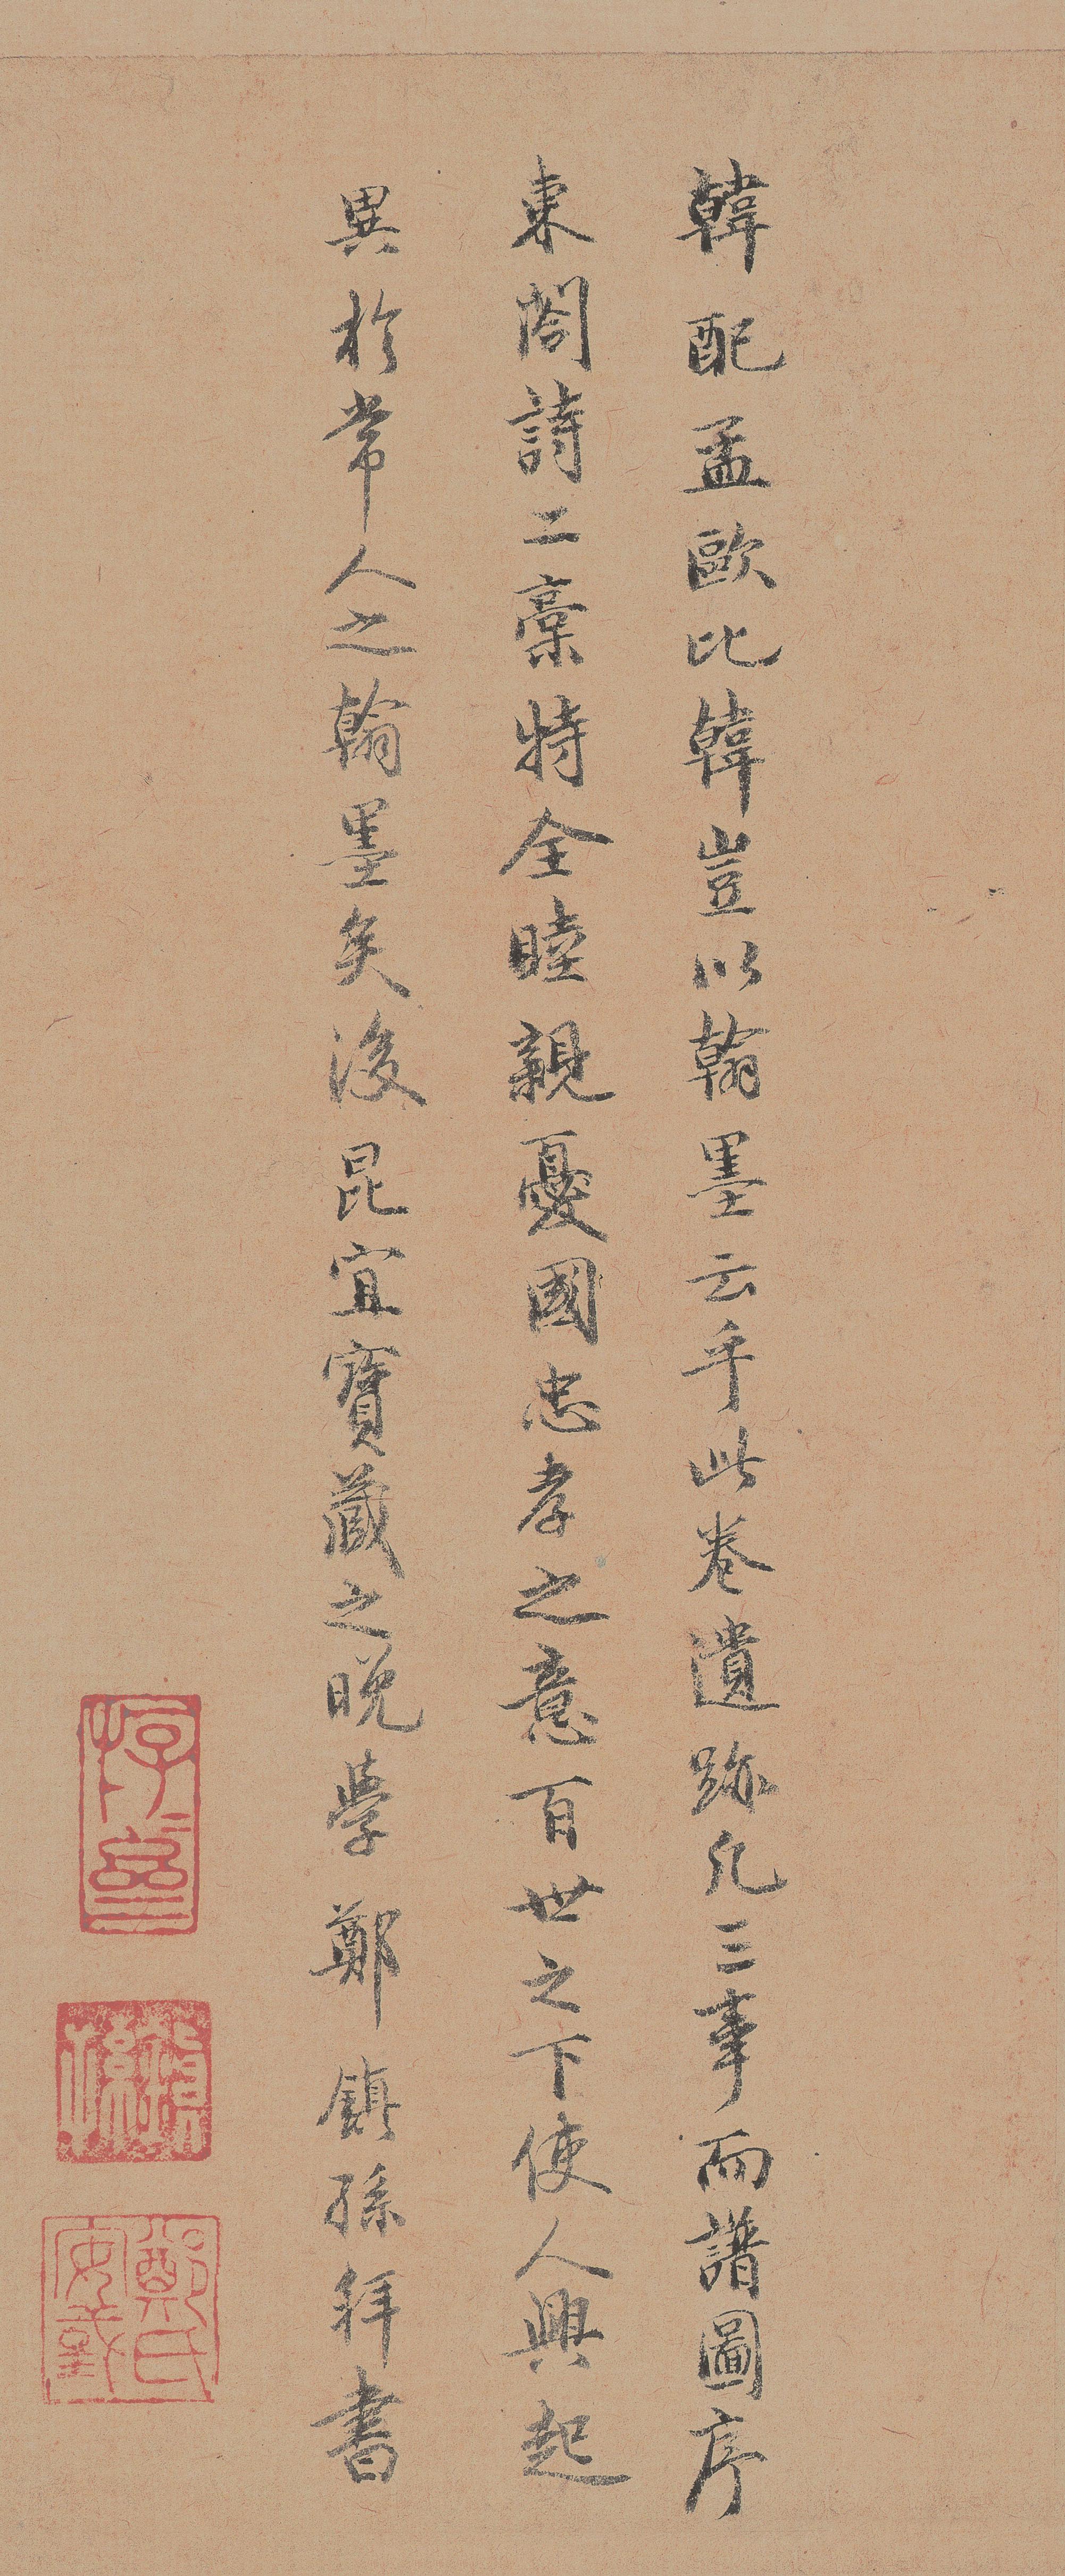 韓配孟歐比韓豈以翰墨云乎此卷遺跡凡三事而譜圖序
東閤詩二稾特全睦親憂國忠孝之意百世之下使人興起
異於常人之翰墨矣後昆宜寶藏之晚學鄭鎮孫拜書
鄭氏安義